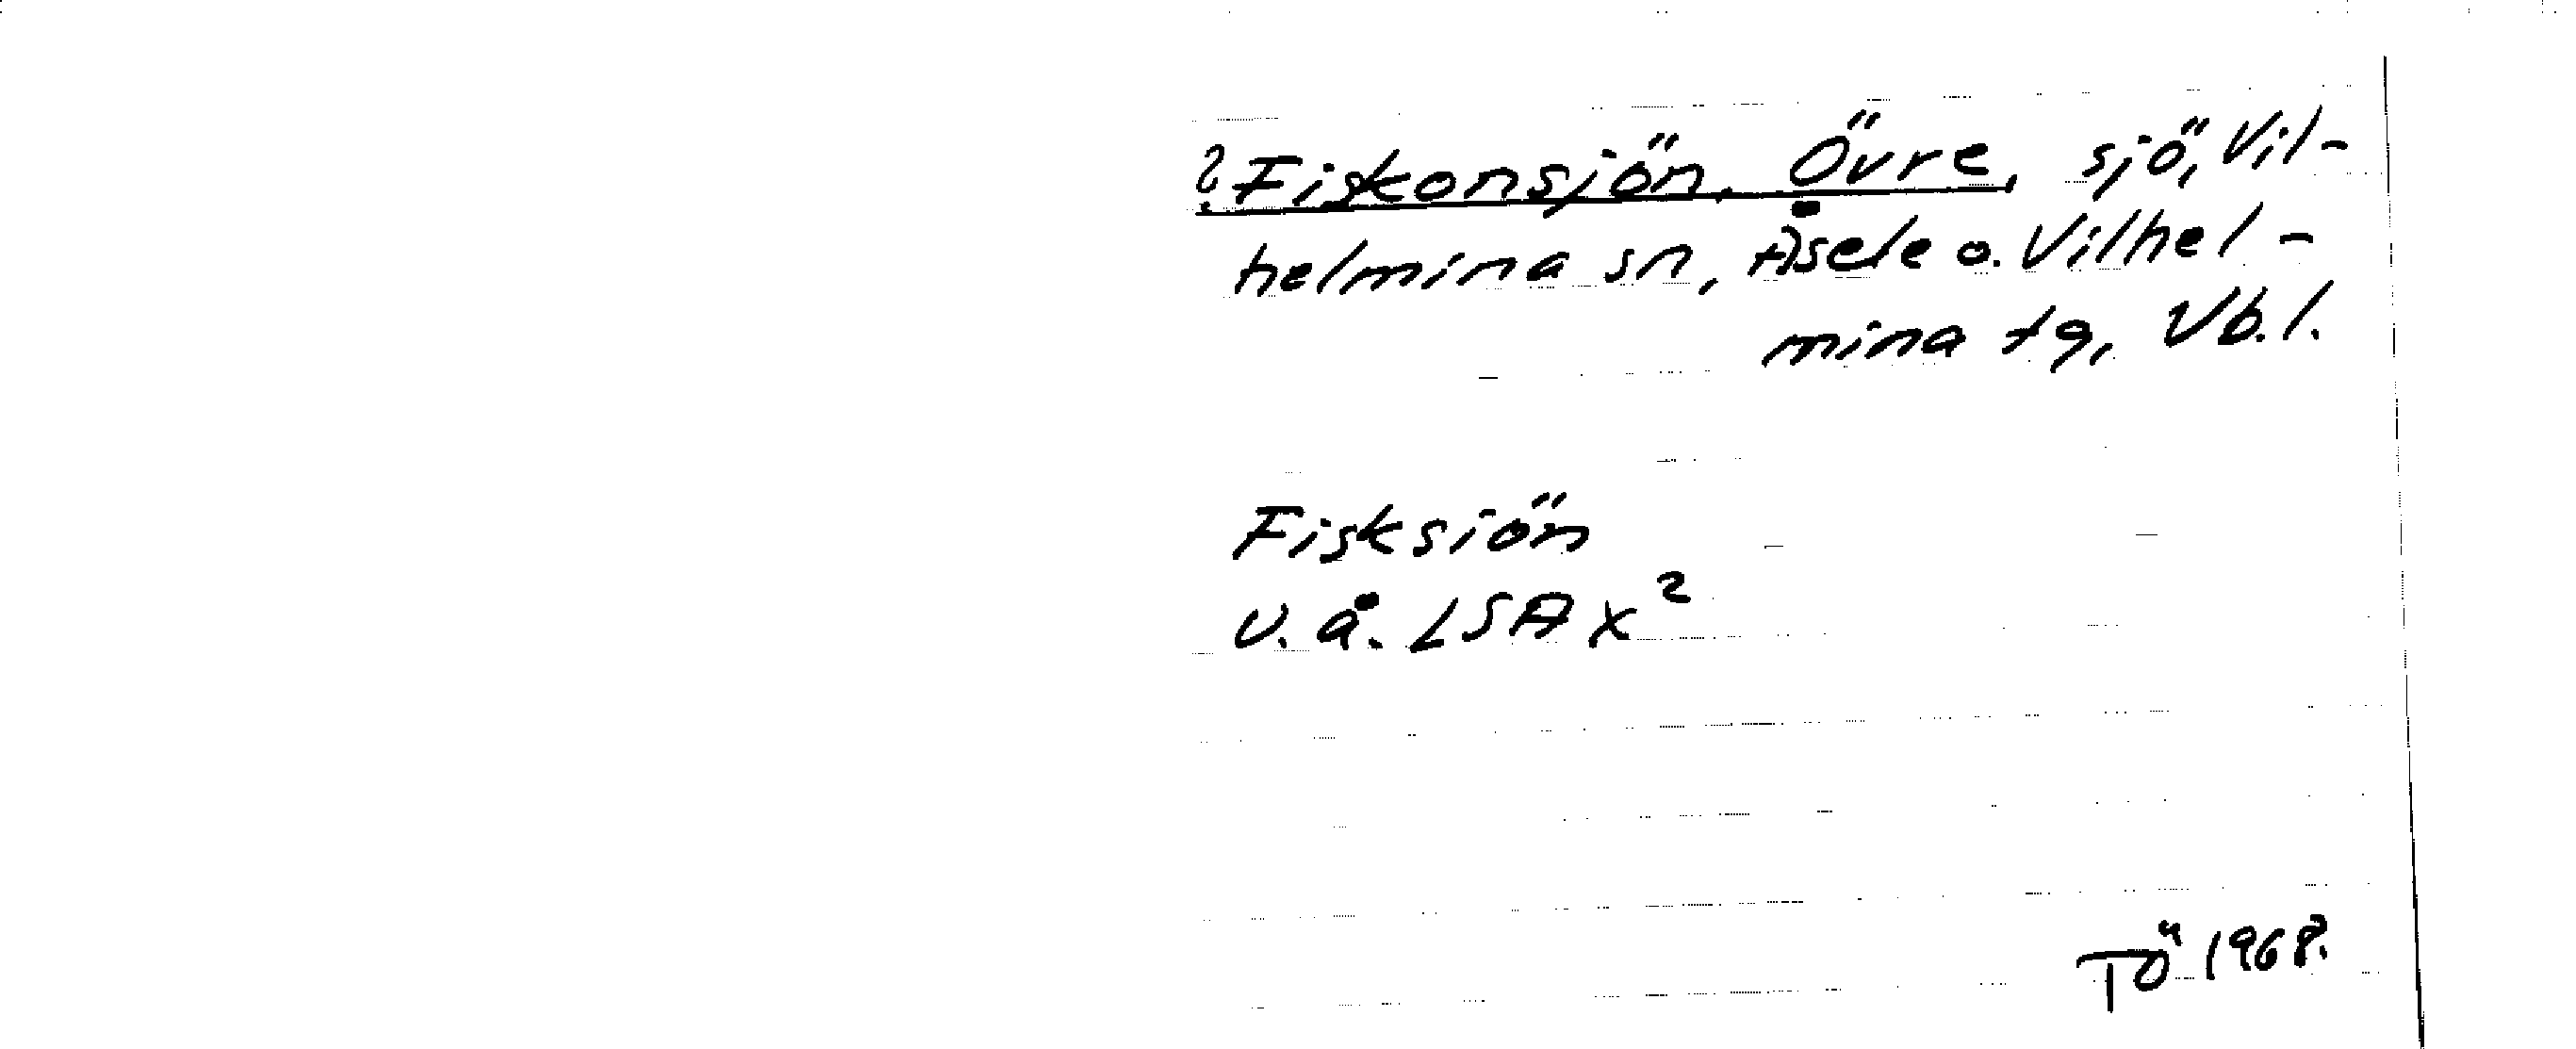 ?Fiskonsjön, Övre, sjö, Vil-
helmina sn, Åsele o. Vilhel-
mina tg, Vb.l.
Fisksiön
u.å. LSA X²
TÖ 1968.